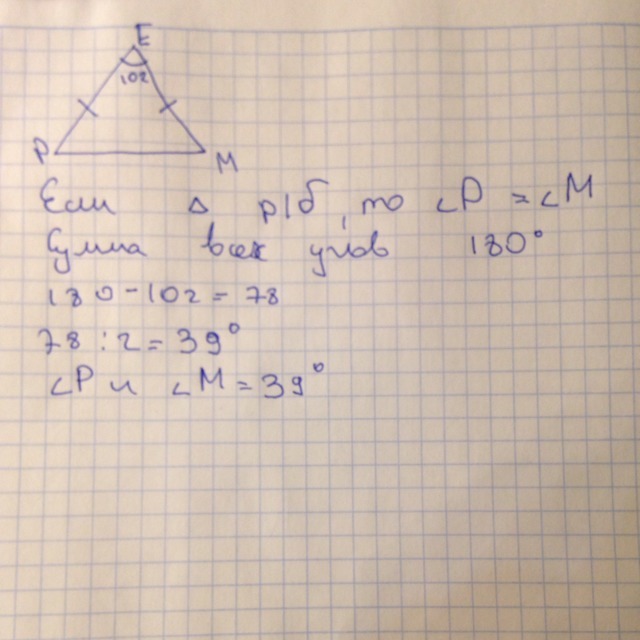 E
102
P
M
Если △ р/б, то ∠P = ∠M
Сумма всех углов 180°
180-102=78
78:2=39°
∠P и ∠M=39°